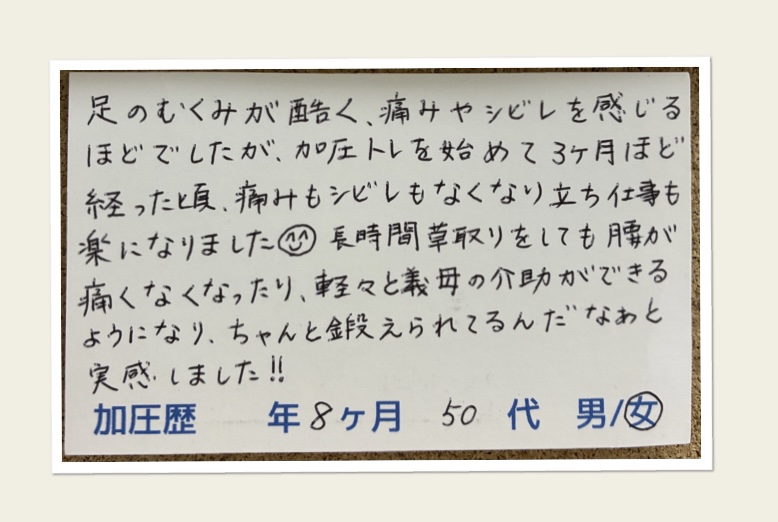 足のむくみが酷く、痛みやシビレを感じる
ほどでしたが、加圧トレを始めて3ヶ月ほど
経った頃、痛みもシビレもなくなり立ち仕事も
楽になりました😊 長時間草取りをしても腰が
痛くなくなったり、軽々と義母の介助ができる
ようになり、ちゃんと鍛えられてるんだなぁと
実感しました!!
加圧歴 年8ヶ月 50代 男/女